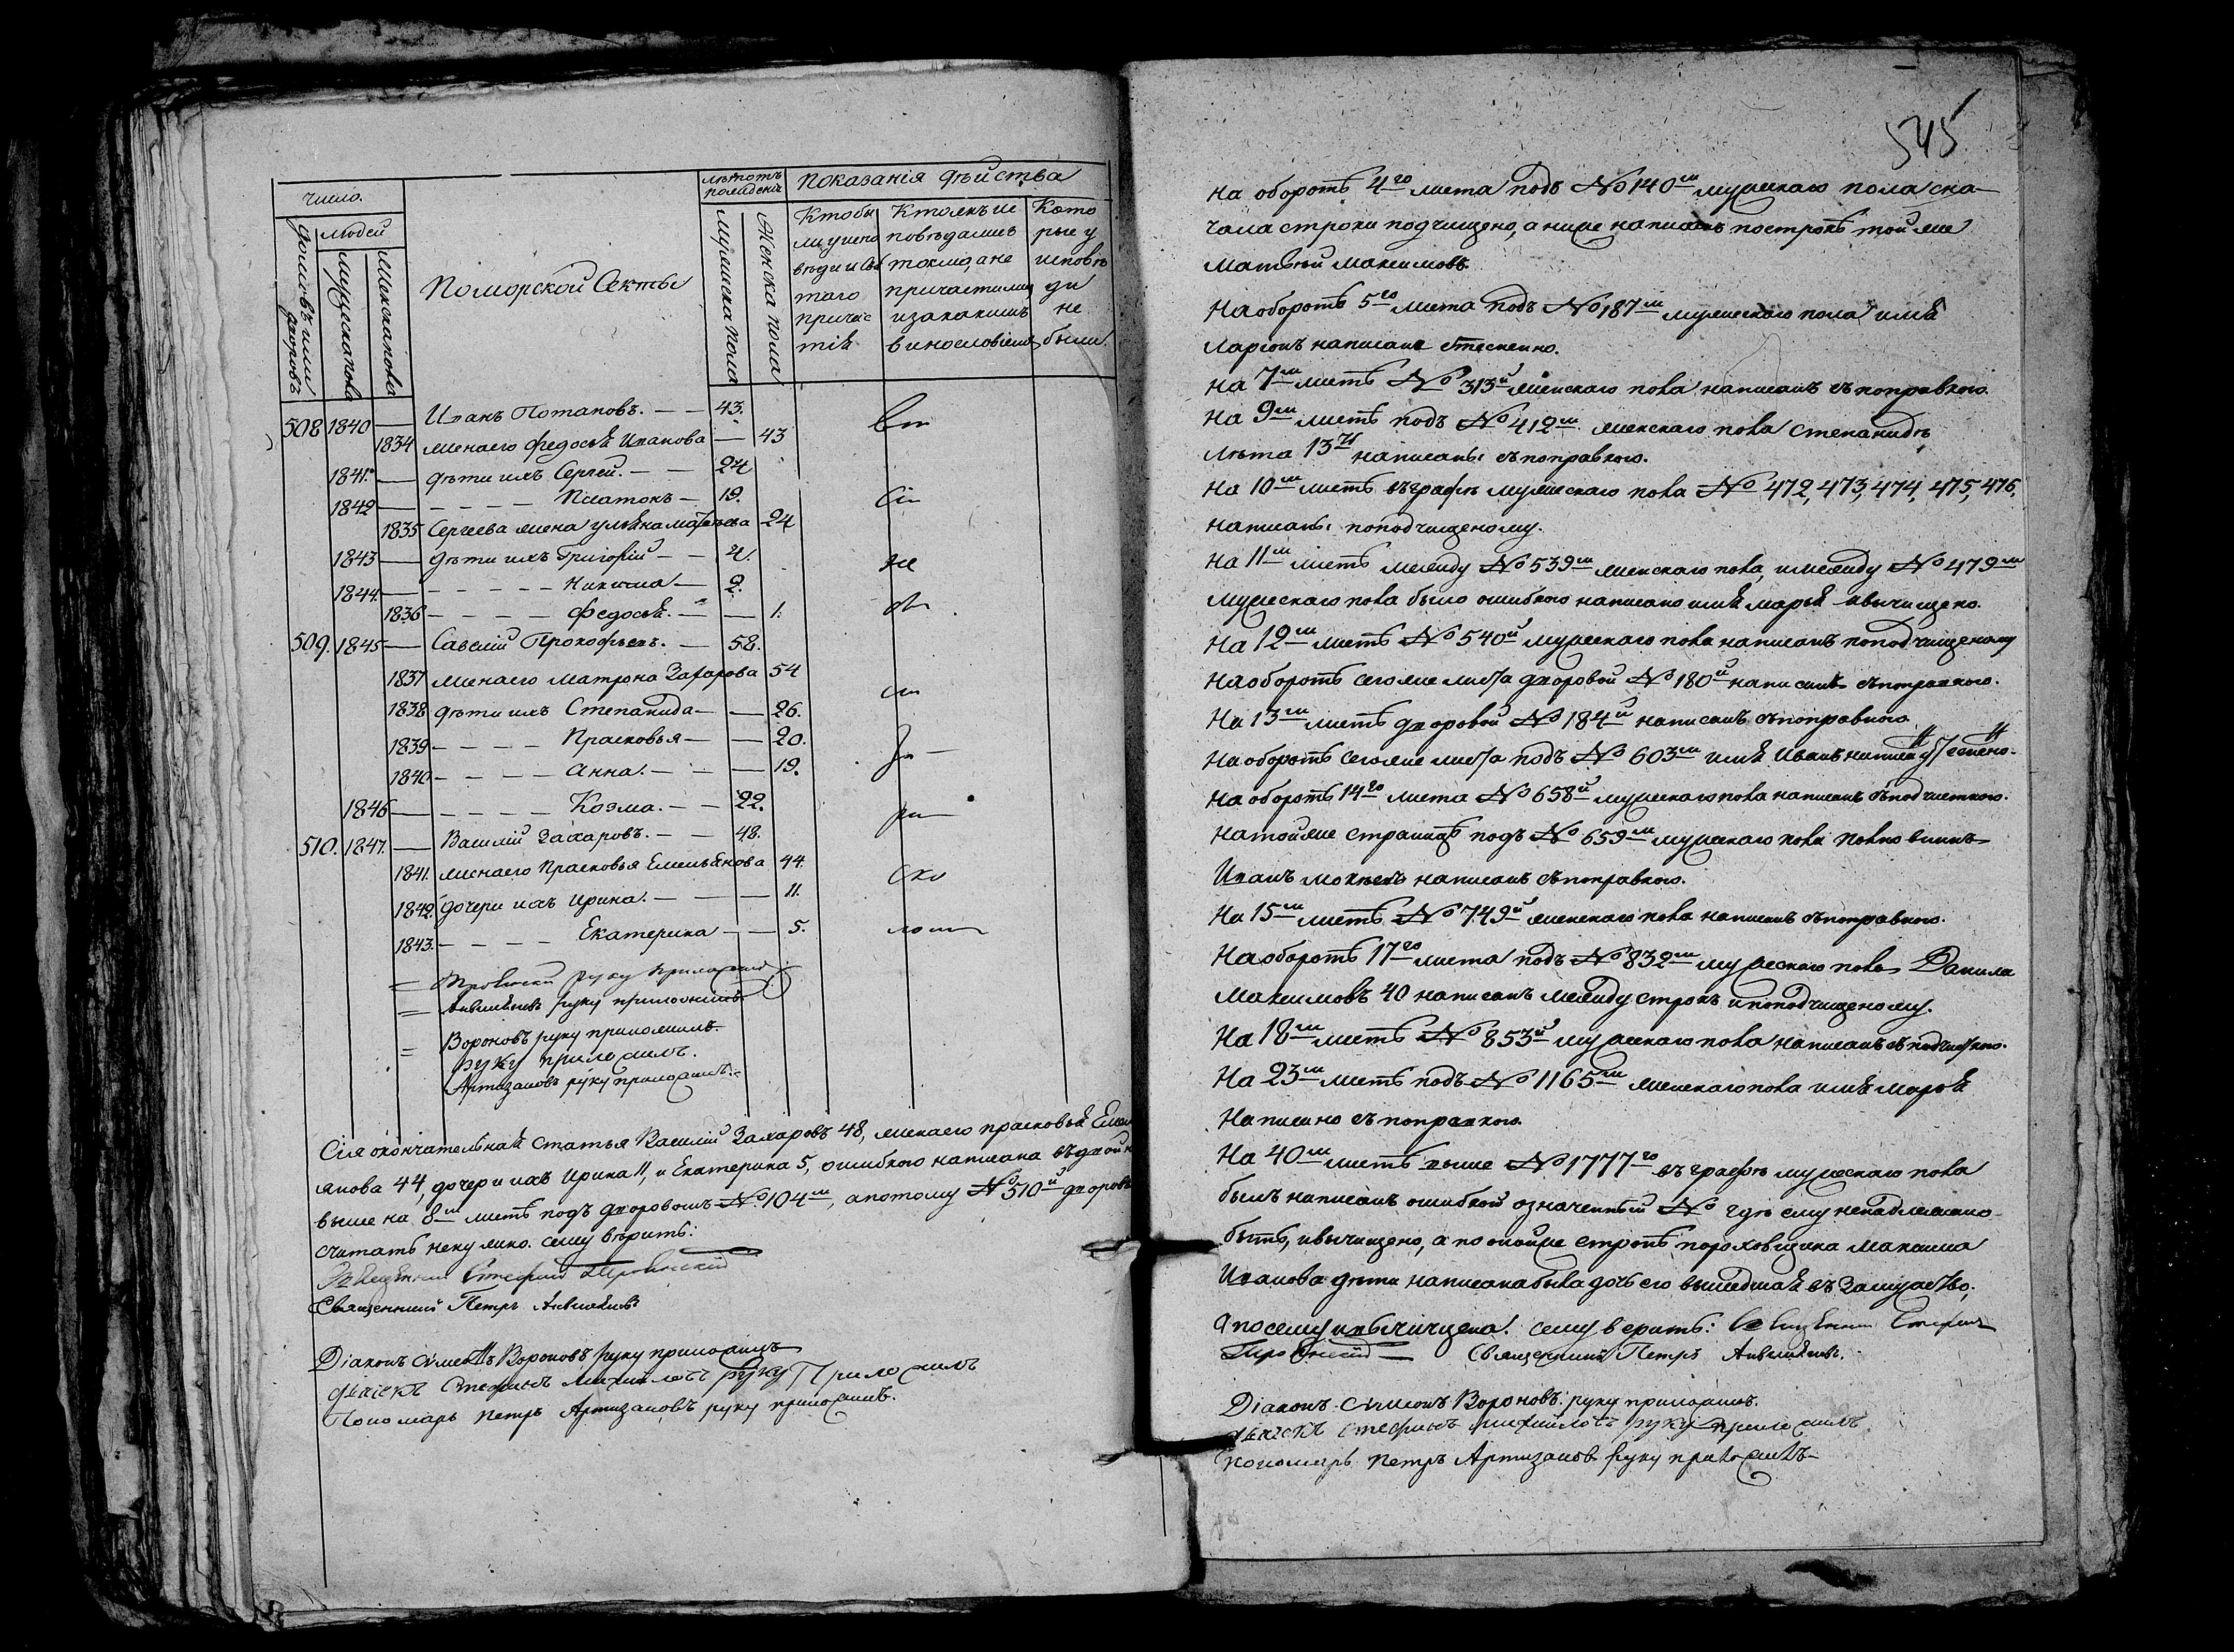 число.
людей
домовъ или дворовъ
мужеска пола
женска пола
Поморской Секты
лѣтотъ рождения
мужеска пола
женска пола
Показанія дѣйства
Кто бы
ли у испо
вѣди и Свя
таго
причас
тія
Кто якъ ис
повѣдались
токмо, а не
причастились
и за какимъ
винословіемъ
Кото
рые у
исповѣ
ди
не
были.
508 1840 — Иванъ Потаповъ. — — 43.
1834 жена его Федосья Иванова — 43
1841. — дѣти ихъ Сергей. — — 24
1842 — — — — — Платонъ — 19.
1835 Сергеева жена Ульяна Матвѣева 24
1843 — дѣти ихъ Григорій — — 4.
1844. — — — — — Никита — 2.
1836 — — — — Федосья. — — 1.
509. 1845 — Савелій Прокофьевъ. — 58.
1837 жена его Матрона Захарова 54
1838 дѣти ихъ Степанида — — 26.
1839 — — — — Прасковья — — 20.
1840 — — — — Анна. — — — 19.
1846 — — — — — Козма. — — 22.
510. 1847. — Василій Захаровъ. — — 48.
1841. жена его Прасковья Емельянова 44.
1842. дочери ихъ Ирина. — — — 11.
1843. — — — — Екатерина — — 5.
= руку приложилъ
= руку приложилъ
= Вороновъ руку приложилъ.
руку приложилъ.
Артизановъ руку приложилъ.
Сія окончательная статья Василій Захаровъ 48, жена его Прасковья Емель
янова 44, дочери ихъ Ирина 11, и Екатерина 5, ошибкою написана въ двойнѣ
выше на 8м листѣ подъ дворовымъ № 104м, а потому № 510й дворовъ
считать не нужно. сему вѣрить:
Священникъ Стефанъ
Священникъ Петръ
Діаконъ Симеонъ Вороновъ руку приложилъ
дьячекъ Стефанъ Михайловъ руку Приложилъ
Пономарь Петръ Артизановъ руку приложилъ.
545
На оборотѣ 4го листа подъ № 140м мужескаго пола сна-
чала строки подчищено, а ниже написанъ по строкѣ той же
Матвѣй Максимовъ.
На оборотѣ 5го листа подъ № 187м мужескаго пола имя
Ларіонъ написано стеснено.
На 7м листѣ № 313й женскаго пола написанъ съ поправкою.
На 9м листѣ подъ № 412м женскаго пола Степанидѣ
лѣта 13ть написаны съ поправкою.
На 10м листѣ въ графѣ мужескаго пола № 472, 473, 474, 475, 476,
написаны по подчищеному.
На 11м листѣ между № 539м женскаго пола, и между № 479м
мужескаго пола было ошибкою написано имя Марья и вычищено.
На 12м листѣ № 540й мужескаго пола написанъ по подчищеному
На оборотѣ сего же листа дворовой № 180й написанъ съ поправкою.
На 13м листѣ дворовой № 184й написанъ съ поправкою
На оборотѣ сего же листа подъ № 603м имя Иванъ стеснено.
На оборотѣ 14го листа № 658й мужескаго пола написанъ съ подчисткою.
На той же страницѣ подъ № 659м мужескаго пола
Иванъ написанъ съ поправкою.
На 15м листѣ № 749й женскаго пола написанъ съ поправкою.
На оборотѣ 17го листа подъ № 832м мужескаго пола Данила
Максимовъ 40 написанъ между строкъ и по подчищеному.
На 18м листѣ № 853й мужескаго пола написанъ съ подчисткою.
На 23м листѣ подъ № 1165м женскаго пола имя Марья
Написано съ поправкою.
На 40м листѣ выше № 1777го въ графѣ мужескаго пола
былъ написанъ ошибкой означенный № гдѣ ему не надлежало
быть, и вычищено, а по онойже строкѣ пороховщика Максима
Иванова дѣти написана была дочь его вышедшая въ Замужство,
а по сему и вычищена. сему верить: Священникъ Стефанъ
Священникъ Петръ
Діаконъ Симеонъ Вороновъ руку приложилъ.
дьячекъ Стефанъ Михайловъ руку приложилъ
Пономарь Петръ Артизановъ руку приложилъ